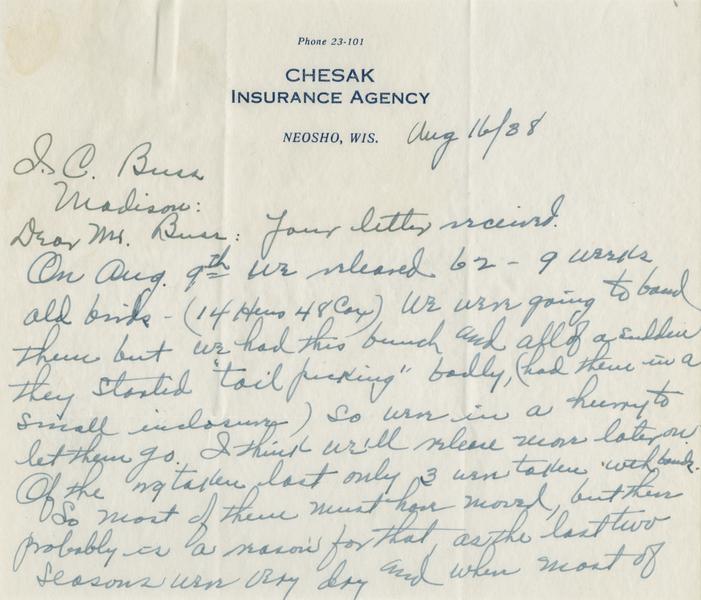 Phone 23-101
CHESAK
INSURANCE AGENCY
NEOSHO, WIS. Aug 16/38
I. C. Buss
Madison:
Dear Mr. Buss: Your letter received.
On Aug. 9th we released 62 - 9 weeks
old birds - (14 Hens 48 Cox) We were going to band
them but we had this bunch and all of a sudden
they started "tail picking" badly, (had them in a
small inclosure) So were in a hurry to
let them go. I think we'll release more later on.
Of the taken last only 3 were taken with bands.
So most of them must have moved, but then
probably is a reason for that, as the last two
seasons were very dry and when most of